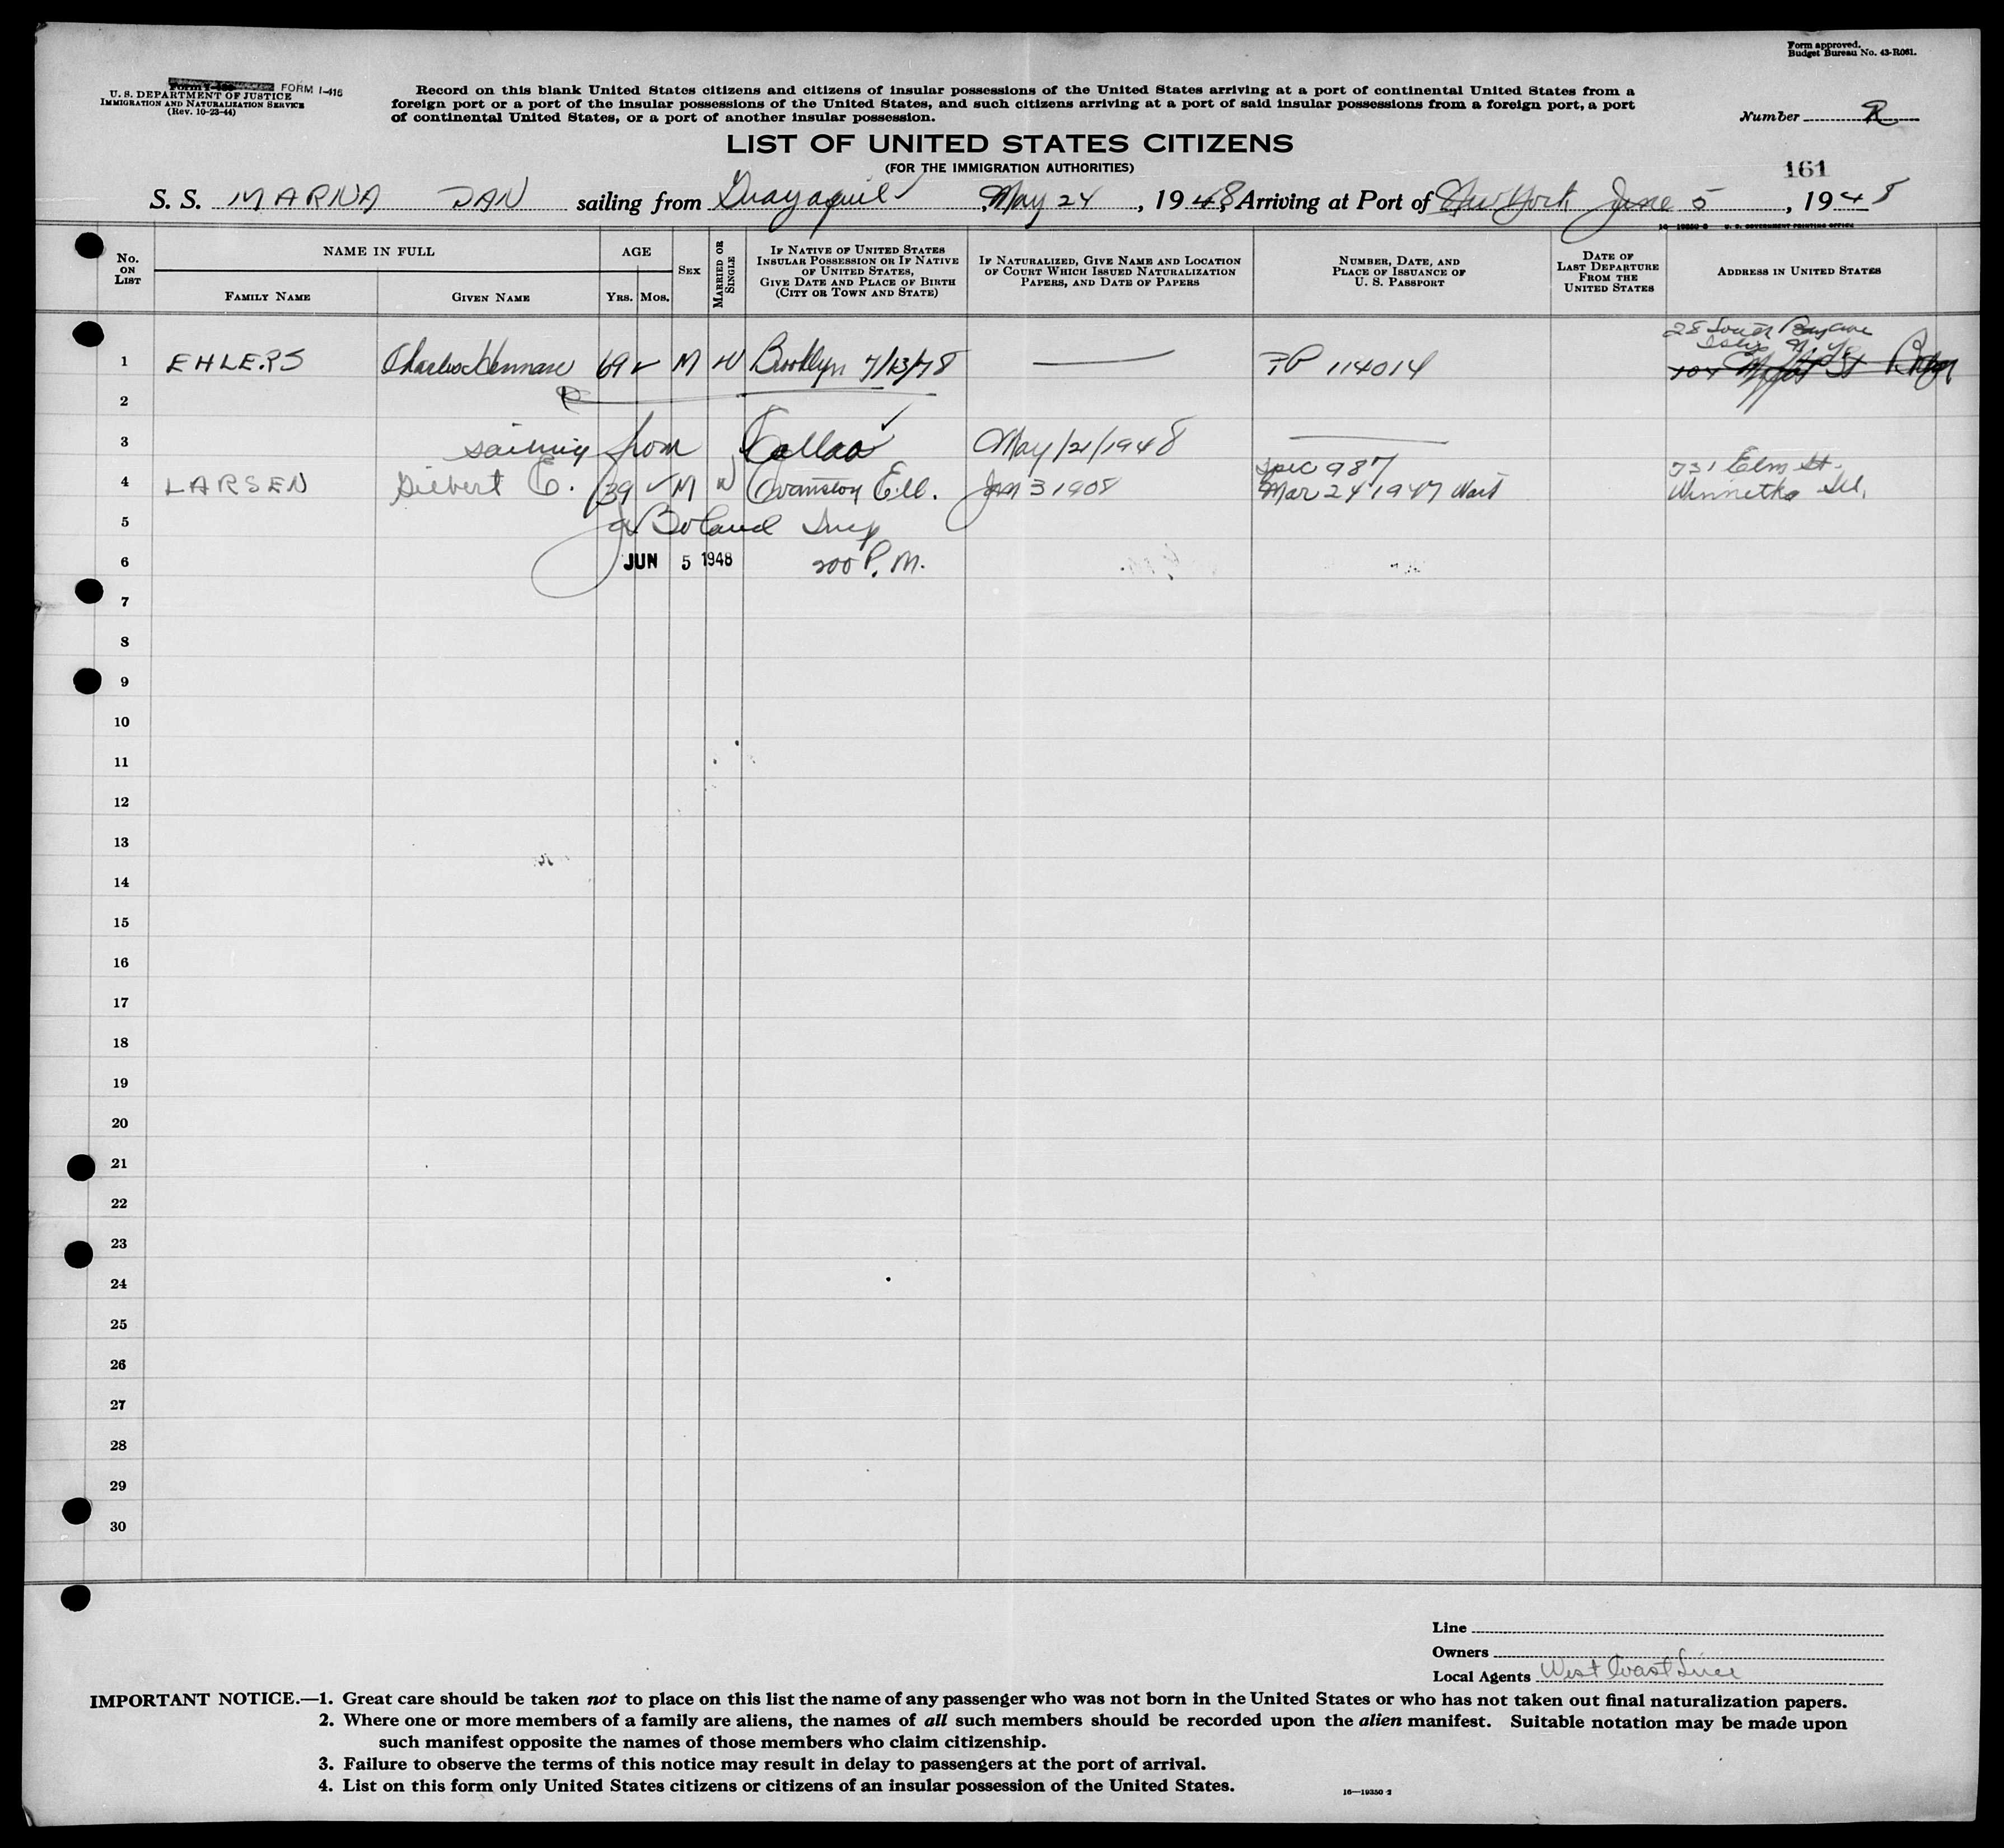 Form approved.
Budget Bureau No. 43-R061.
FORM I-416
U. S. DEPARTMENT OF JUSTICE
IMMIGRATION AND NATURALIZATION SERVICE
(Rev. 10-23-44)
Record on this blank United States citizens and citizens of insular possessions of the United States arriving at a port of continental United States from a
foreign port or a port of the insular possessions of the United States, and such citizens arriving at a port of said insular possessions from a foreign port, a port
of continental United States, or a port of another insular possession.
Number
LIST OF UNITED STATES CITIZENS
(FOR THE IMMIGRATION AUTHORITIES)
161
S. S. MARNA DAN sailing from Guayaquil, May 24, 1948, Arriving at Port of New York June 5, 1948
16-19350-2 U. S. GOVERNMENT PRINTING OFFICE
No. ON LIST
NAME IN FULL
FAMILY NAME
GIVEN NAME
AGE
YRS. MOS.
SEX
MARRIED OR SINGLE
IF NATIVE OF UNITED STATES INSULAR POSSESSION OR IF NATIVE OF UNITED STATES, GIVE DATE AND PLACE OF BIRTH (CITY OR TOWN AND STATE)
IF NATURALIZED, GIVE NAME AND LOCATION OF COURT WHICH ISSUED NATURALIZATION PAPERS, AND DATE OF PAPERS
NUMBER, DATE, AND PLACE OF ISSUANCE OF U. S. PASSPORT
DATE OF LAST DEPARTURE FROM THE UNITED STATES
ADDRESS IN UNITED STATES
28 South Bay ave
Islip N. Y.
1 EHLERS Charles Hermann 69 M W Brooklyn 7/13/78 — PP 114014
2
3 sailing from Callao May/21/1948 —
Spec 987 731 Elm St.
4 LARSEN Gilbert E. 39 M W Evanston Ill. Jan 3 1908 Mar 24 1947 Winnetka Ill.
5 Boland Insp
6 JUN 5 1948 200 P.M.
7
8
9
10
11
12
13
14
15
16
17
18
19
20
21
22
23
24
25
26
27
28
29
30
Line
Owners
Local Agents West Coast Line
IMPORTANT NOTICE.—1. Great care should be taken not to place on this list the name of any passenger who was not born in the United States or who has not taken out final naturalization papers.
2. Where one or more members of a family are aliens, the names of all such members should be recorded upon the alien manifest. Suitable notation may be made upon
such manifest opposite the names of those members who claim citizenship.
3. Failure to observe the terms of this notice may result in delay to passengers at the port of arrival.
4. List on this form only United States citizens or citizens of an insular possession of the United States.
16—19350-2